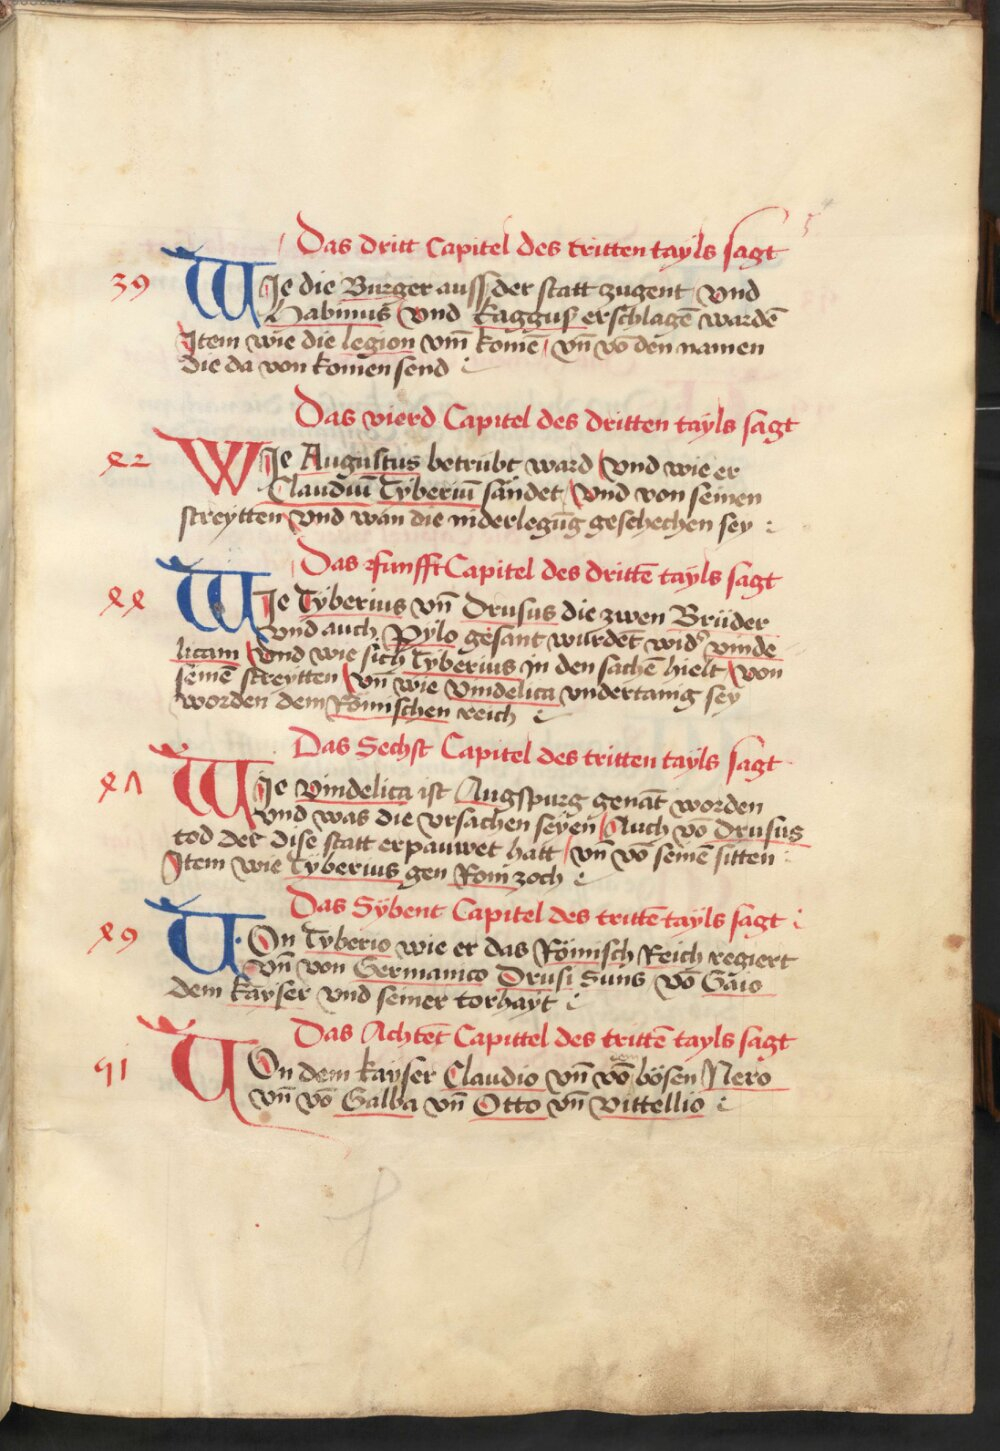 5
Das dritt Capitel des tritten tayls sagt
39 WJe die Burger auss der statt zugent vnd
Habinus vnd kaggus erschlagē wardē
Jtem wie die legion vm̄ komē vn̄ vō den namen
die da von komen send
Das vierd Capitel des dritten tayls sagt
42 WJe Augustus betrübt ward vnd wie er
Claudiū Tyberiū sandet vnd von seinen
streytten vnd wan die niderlegūg geschechen sey
Das funfft Capitel des drittē tayls sagt
44 WJe Tyberius vn̄ Drusus die zwen Brüder
vnd auch Pylo gesant wurdet wid vinde
licam vnd wie sich Tyberius in den sachē hielt von
seinē streytten vn̄ wie vindelica vndertanig sey
worden dem Römischen reich
Das Sechst Capitel des tritten tayls sagt
47 WJe vindelica ist Augspurg genāt worden
vnd was die vrsachen seyen Auch vō Drusus
tod der dise statt erpauwet hatt vn̄ vō seinē sitten
Jtem wie Tyberius gen Rom zoch
Das Sybent Capitel des trittē tayls sagt
49 VOn Tyberio wie er das Römisch Reich regiert
vn̄ von Germanico Drusi suns vō Gaio
dem kayser vnd seiner torhayt
Das Achtet Capittel des trittē tayls sagt
51 VOn dem kayser Claudio vn̄ vō bösen Nero
vn̄ vō Galba vn̄ Otto vn̄ vittellio